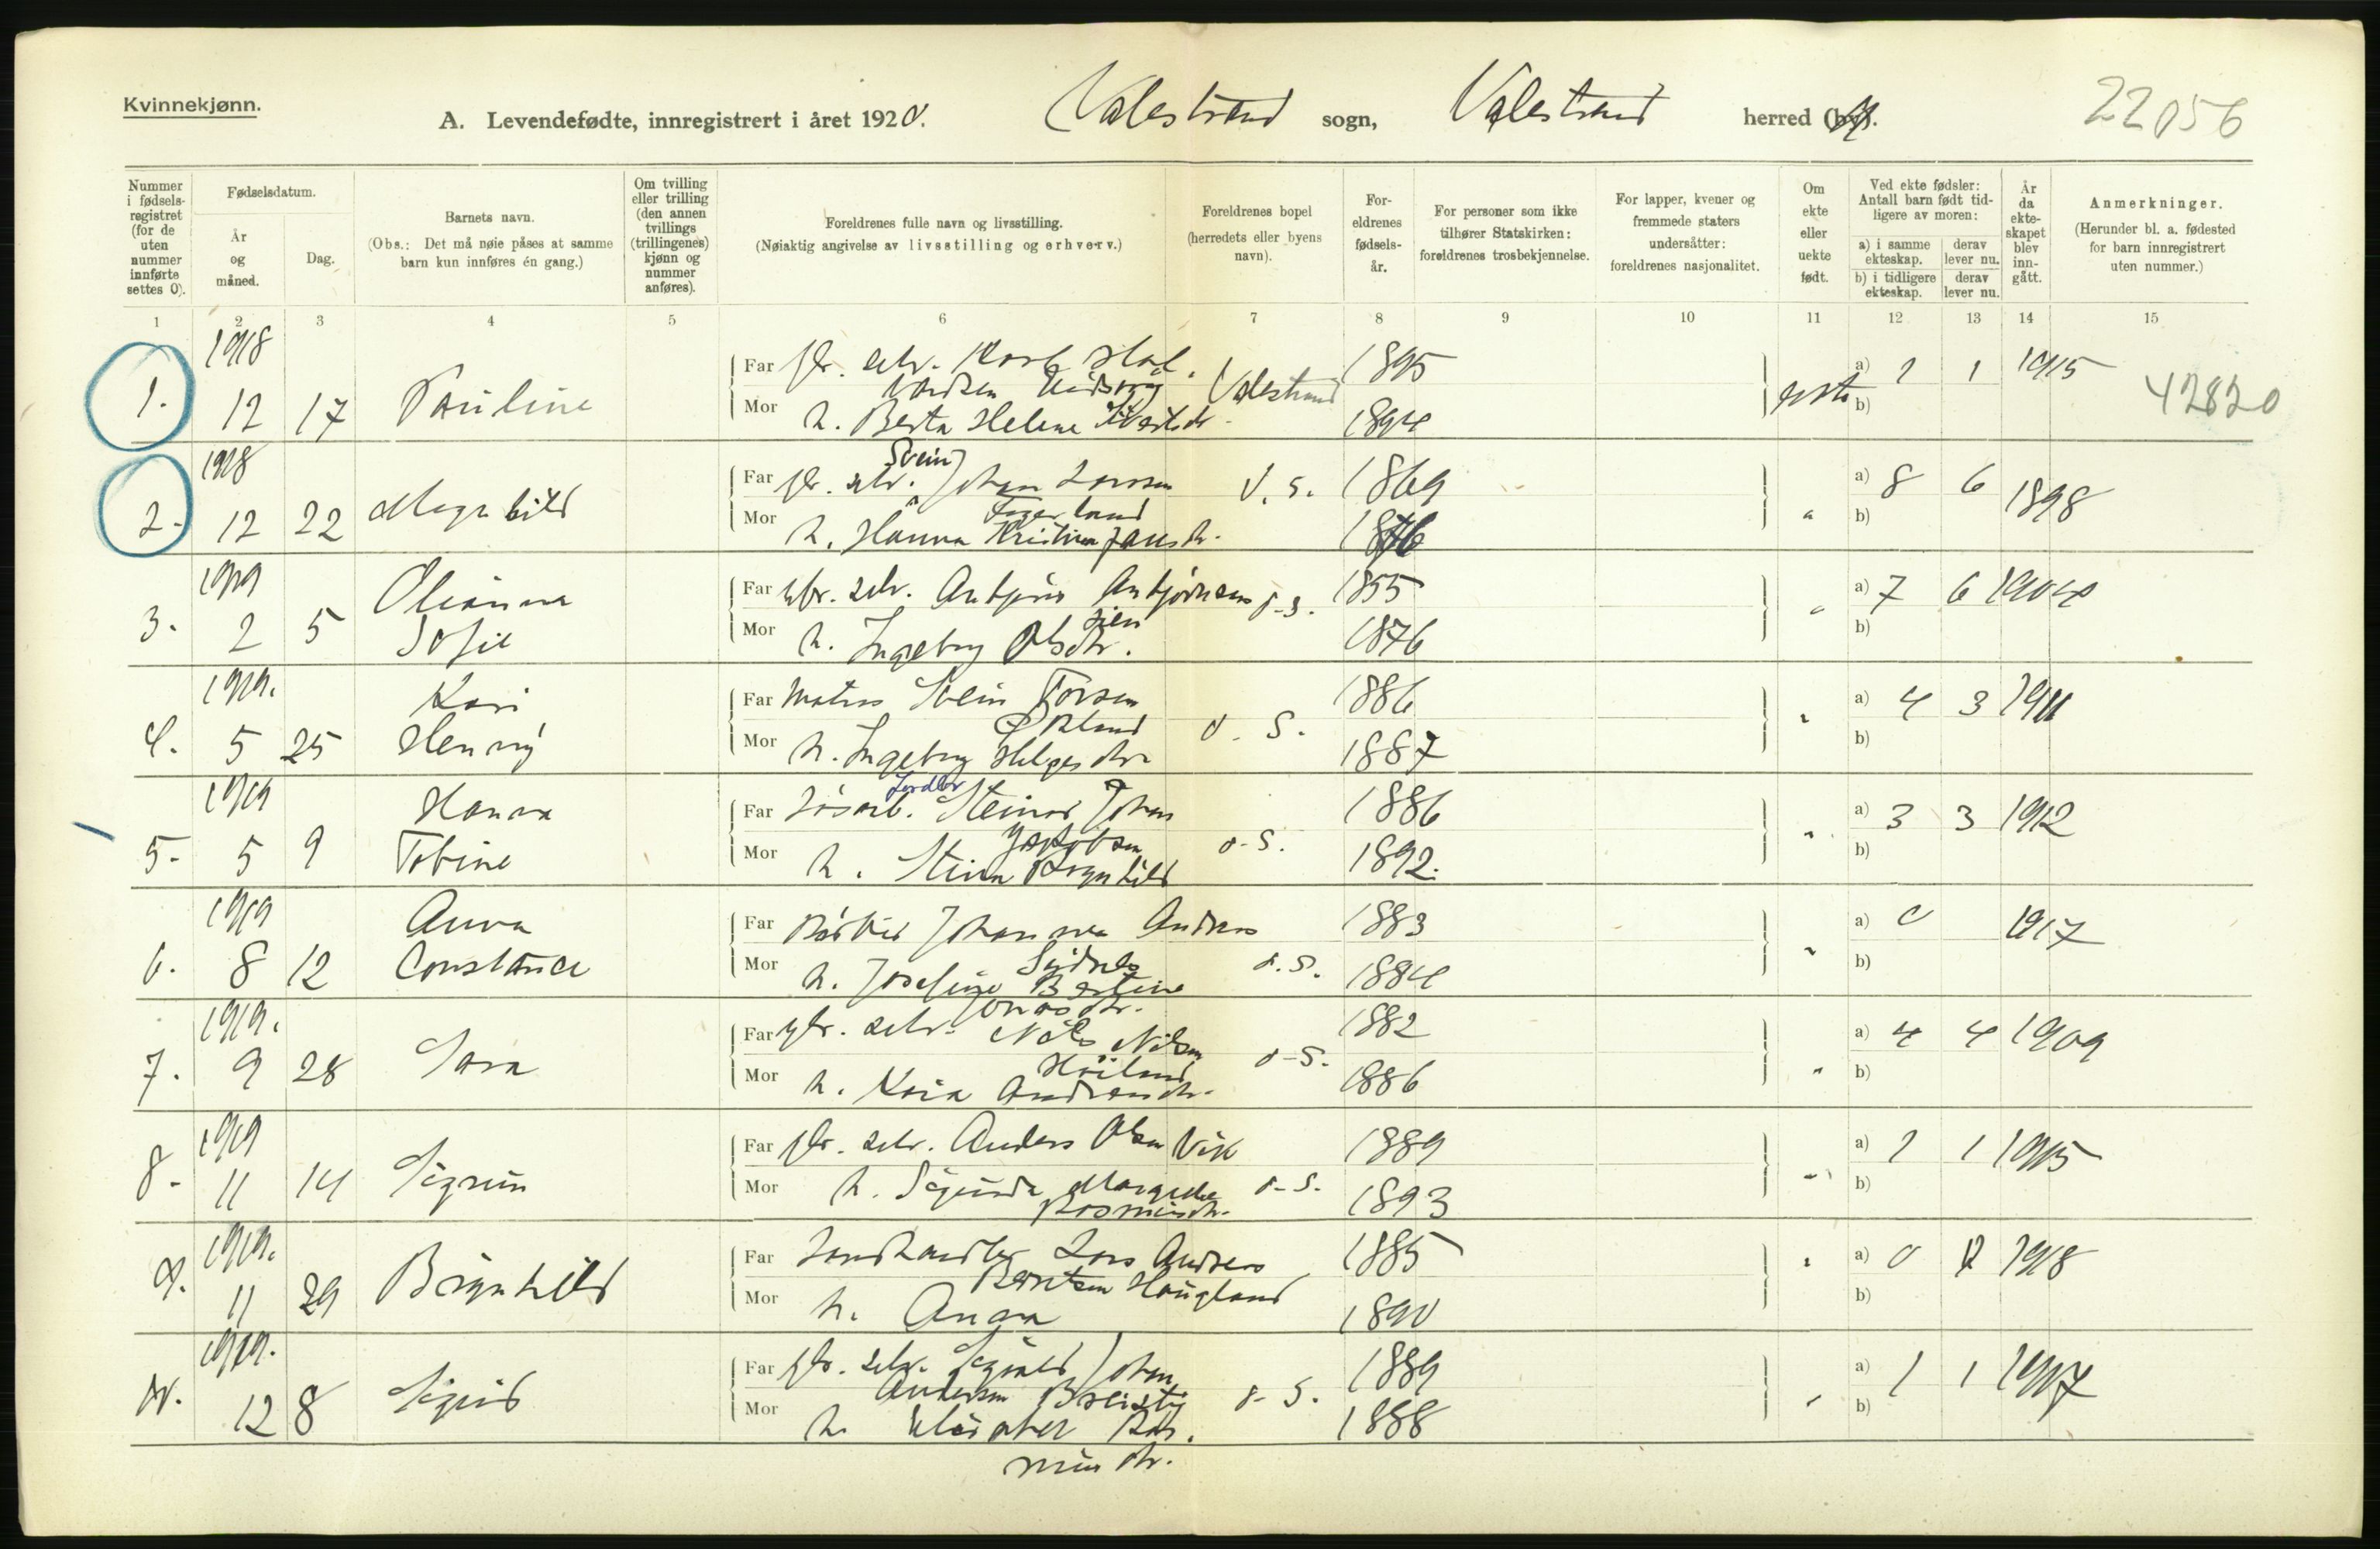 Kvinnekjønn.
A. Levendefødte, innregistrert i året 1920. Valestrand sogn, Valestrand herred (by).
22056
Nummer i fødsels-registret (for de uten nummer innførte settes 0).
Fødselsdatum.
År og måned.
Dag.
Barnets navn.
(Obs.: Det må nøie påses at samme barn kun innføres én gang.)
Om tvilling eller trilling (den annen tvillings (trillingenes) kjønn og nummer anføres).
Foreldrenes fulle navn og livsstilling.
(Nøiaktig angivelse av livsstilling og erhverv.)
Foreldrenes bopel (herredets eller byens navn).
For-eldrenes fødsels-år.
For personer som ikke tilhører Statskirken: foreldrenes trosbekjennelse.
For lapper, kvener og fremmede staters undersåtter: foreldrenes nasjonalitet.
Om ekte eller uekte født.
Ved ekte fødsler: Antall barn født tid-ligere av moren:
a) i samme ekteskap. derav lever nu.
b) i tidligere ekteskap. derav lever nu.
År da ekte-skapet blev inn-gått.
Anmerkninger.
(Herunder bl. a. fødested for barn innregistrert uten nummer.)
1 2 3 4 5 6 7 8 9 10 11 12 13 14 15
1918
1. 12 17 Pauline
Far gbr. selv. 1895
Mor h. Berta Helene Valestrand 1894
ekte a) 1 1 1915
b)
42820
1918
2. 12 22 Magnhild
Far gbr. selv. Svein Johan Larsen d. s. 1869
Fagerland
Mor h. Hanna Kristina Jansdtr. 1876
" a) 8 6 1898
b)
1919
3. 2 5 Olianna Sofie
Far gbr. selv. Anbjørn Anbjørnsen d. s. 1855
Mor h. Ingeborg Olsdtr. 1876
" a) 7 6 1904
b)
1919.
4. 5 25 Kari Henny
Far Matros Svein Torsen 1886
Økland
Mor h. Ingeborg Helgesdtr. d. S. 1887
" a) 4 3 1911
b)
1919
5. 5 9 Hanna Tobine
Far Løsarb. Steinar Johan 1886
Jakobsen
Mor h. Stina Ragnhild d. S. 1892.
" a) 3 3 1912
b)
1919
6. 8 12 Anna Constance
Far Johannes Andreas 1883
Mor h. Josefine Bertine d. S. 1884
Jonasdtr.
" a) 0 1917
b)
1919.
7. 9 28 Sara
Far gbr. selv. Nils Nilsen 1882
Høiland d. S.
Mor h. Kaia Andreasdtr. 1886
" a) 4 4 1909
b)
1919
8. 11 14 Sigrun
Far gbr. selv. Anders Olsen Vik 1889
Mor h. Sigurda Margrethe d. S. 1893
Rasmusdtr.
" a) 1 1 1915
b)
1919.
9. 11 29 Brynhild
Far Landhandler Lars Andreas 1885
Berntsen Haugland
Mor h. Anna 1890
" a) 0 1918
b)
1919.
10. 12 8 Sigrid
Far gbr. selv. Sigvald Johan 1889
Andersen Breistig d. S.
Mor h. 1888
" a) 1 1 1917
b)